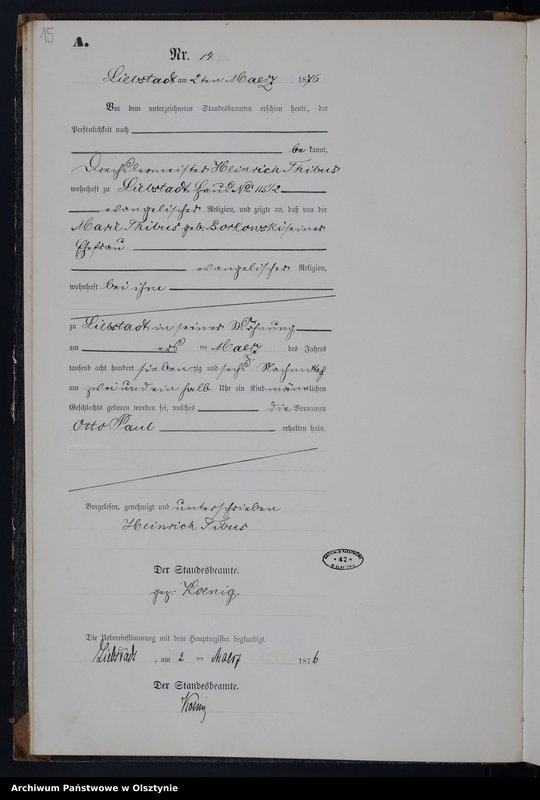 15
A.
Nr. 14
Liebstadt am 2ten Maerz 1876
Vor dem unterzeichneten Standesbeamten erschien heute, der
Persönlichkeit nach
be kannt,
Drechslermeister Heinrich Thibus
wohnhaft zu Liebstadt Haus No 115 1/2
evangelischer Religion, und zeigte an, daß von der
Marie Thibus geb. Borkowski seiner
Ehefrau
evangelischer Religion,
wohnhaft bei ihm
zu Liebstadt in seiner Wohnung
am ersten Maerz des Jahres
tausend acht hundert siebenzig und sechs Nachmittags
um zwei und ein halb Uhr ein Kind männlichen
Geschlechts geboren worden sei, welches die Vornamen
Otto Paul erhalten habe.
Vorgelesen, genehmigt und unterschrieben
Heinrich Tibus
Der Standesbeamte.
gez: Koenig.
42
Die Uebereinstimmung mit dem Hauptregister beglaubigt.
Liebstadt, am 2 ten Maerz 1876
Der Standesbeamte.
Koenig
Archiwum Państwowe w Olsztynie